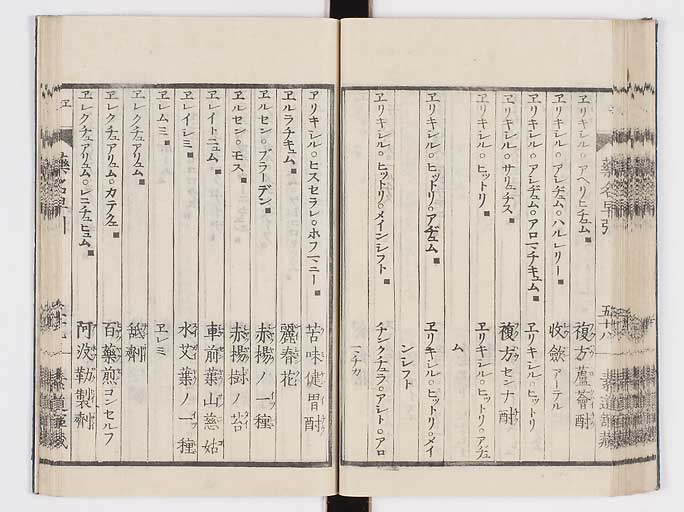 ヱリキシル○アペリヒチュム■
複方蘆薈酎
ヱリキシル○アシヂュム○ハルレリー■
收斂アーテル
ヱリキシル○アレヂュム○アロマチキュム■
ヱリキシル○ヒットリ
ヱリキシル○サリュチス■
複方センナ酎
ヱリキシル○ヒットリ■
ヱリキシル○ヒットリ○アヂュ
ム
ヱリキシル○ヒットリ○アヂュム■
ヱリキシル○ヒットリ○メイ
ンシフト
ヱリキシル○ヒットリ○メインシフト■
チンクチュラ○アレト○アロ
マチカ
ヱリキシル○ヒスセラレ○ホフマニー■
苦味健胃酎
ヱルラチキュム■
麗春花
ヱルセン○ブラーデン■
赤楊ノ一種
ヱルセン○モス■
赤楊樹ノ苔
ヱレイトニュム■
車前葉山慈姑
ヱレイレミ■
水艾葉ノ一種
ヱレムミ■
ヱレミ
ヱレクチュアリュム■
舐劑
ヱレクチュアリュム○カテクュ■
百藥煎コンセルフ
ヱレクチュアリュム○レニチュヒュム■
阿波勒製劑